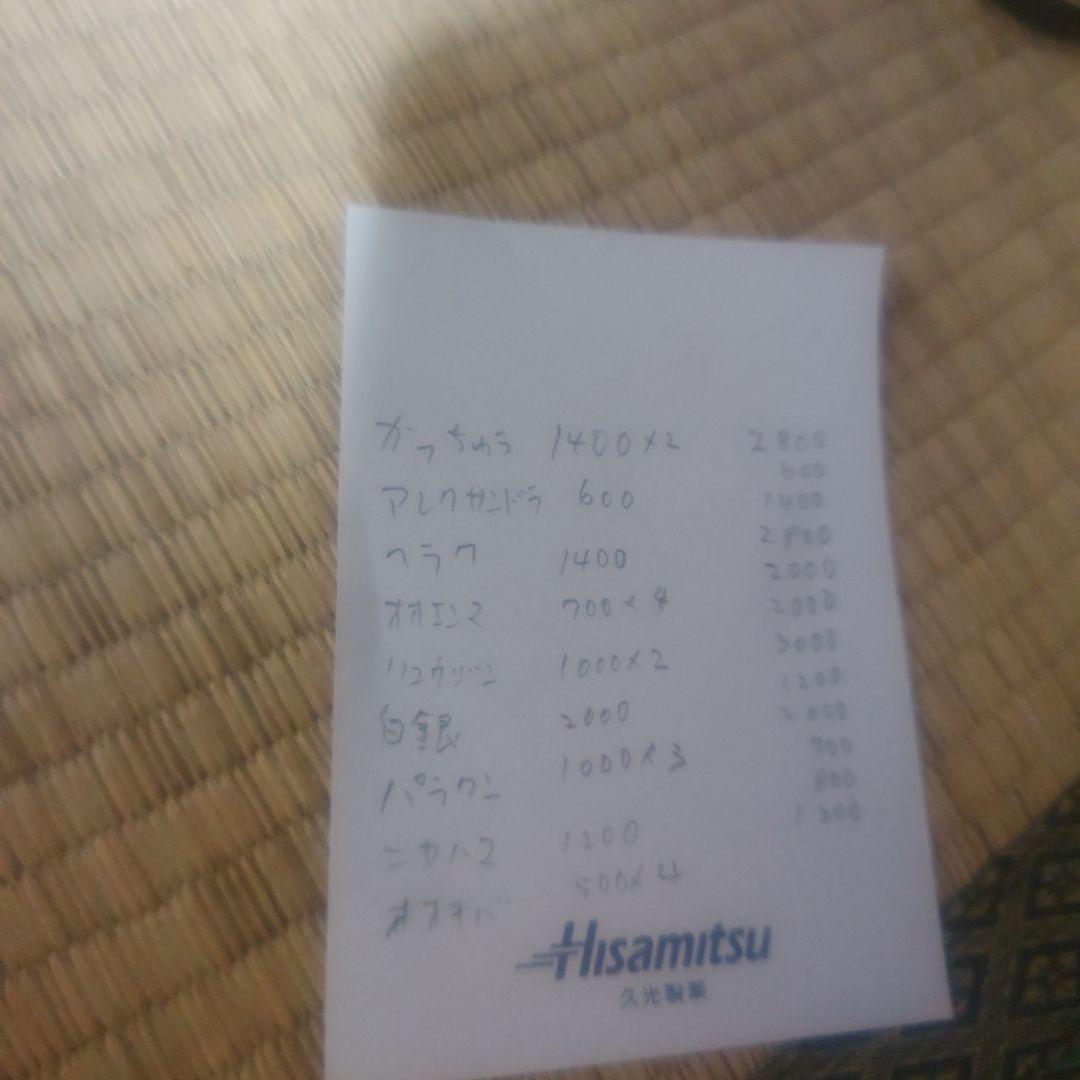 かっちゅう 1400×2 2800
600
アレクサンドラ 600 1400
ヘラク 1400 2800
2000
オオエンマ 700×4 2000
3000
リュウジン 1000×2 1200
白銀 2000 2000
700
パラワン 1000×3 800
1200
ニセハネ 1200
オオキバ 500×4
Hisamitsu
久光製薬